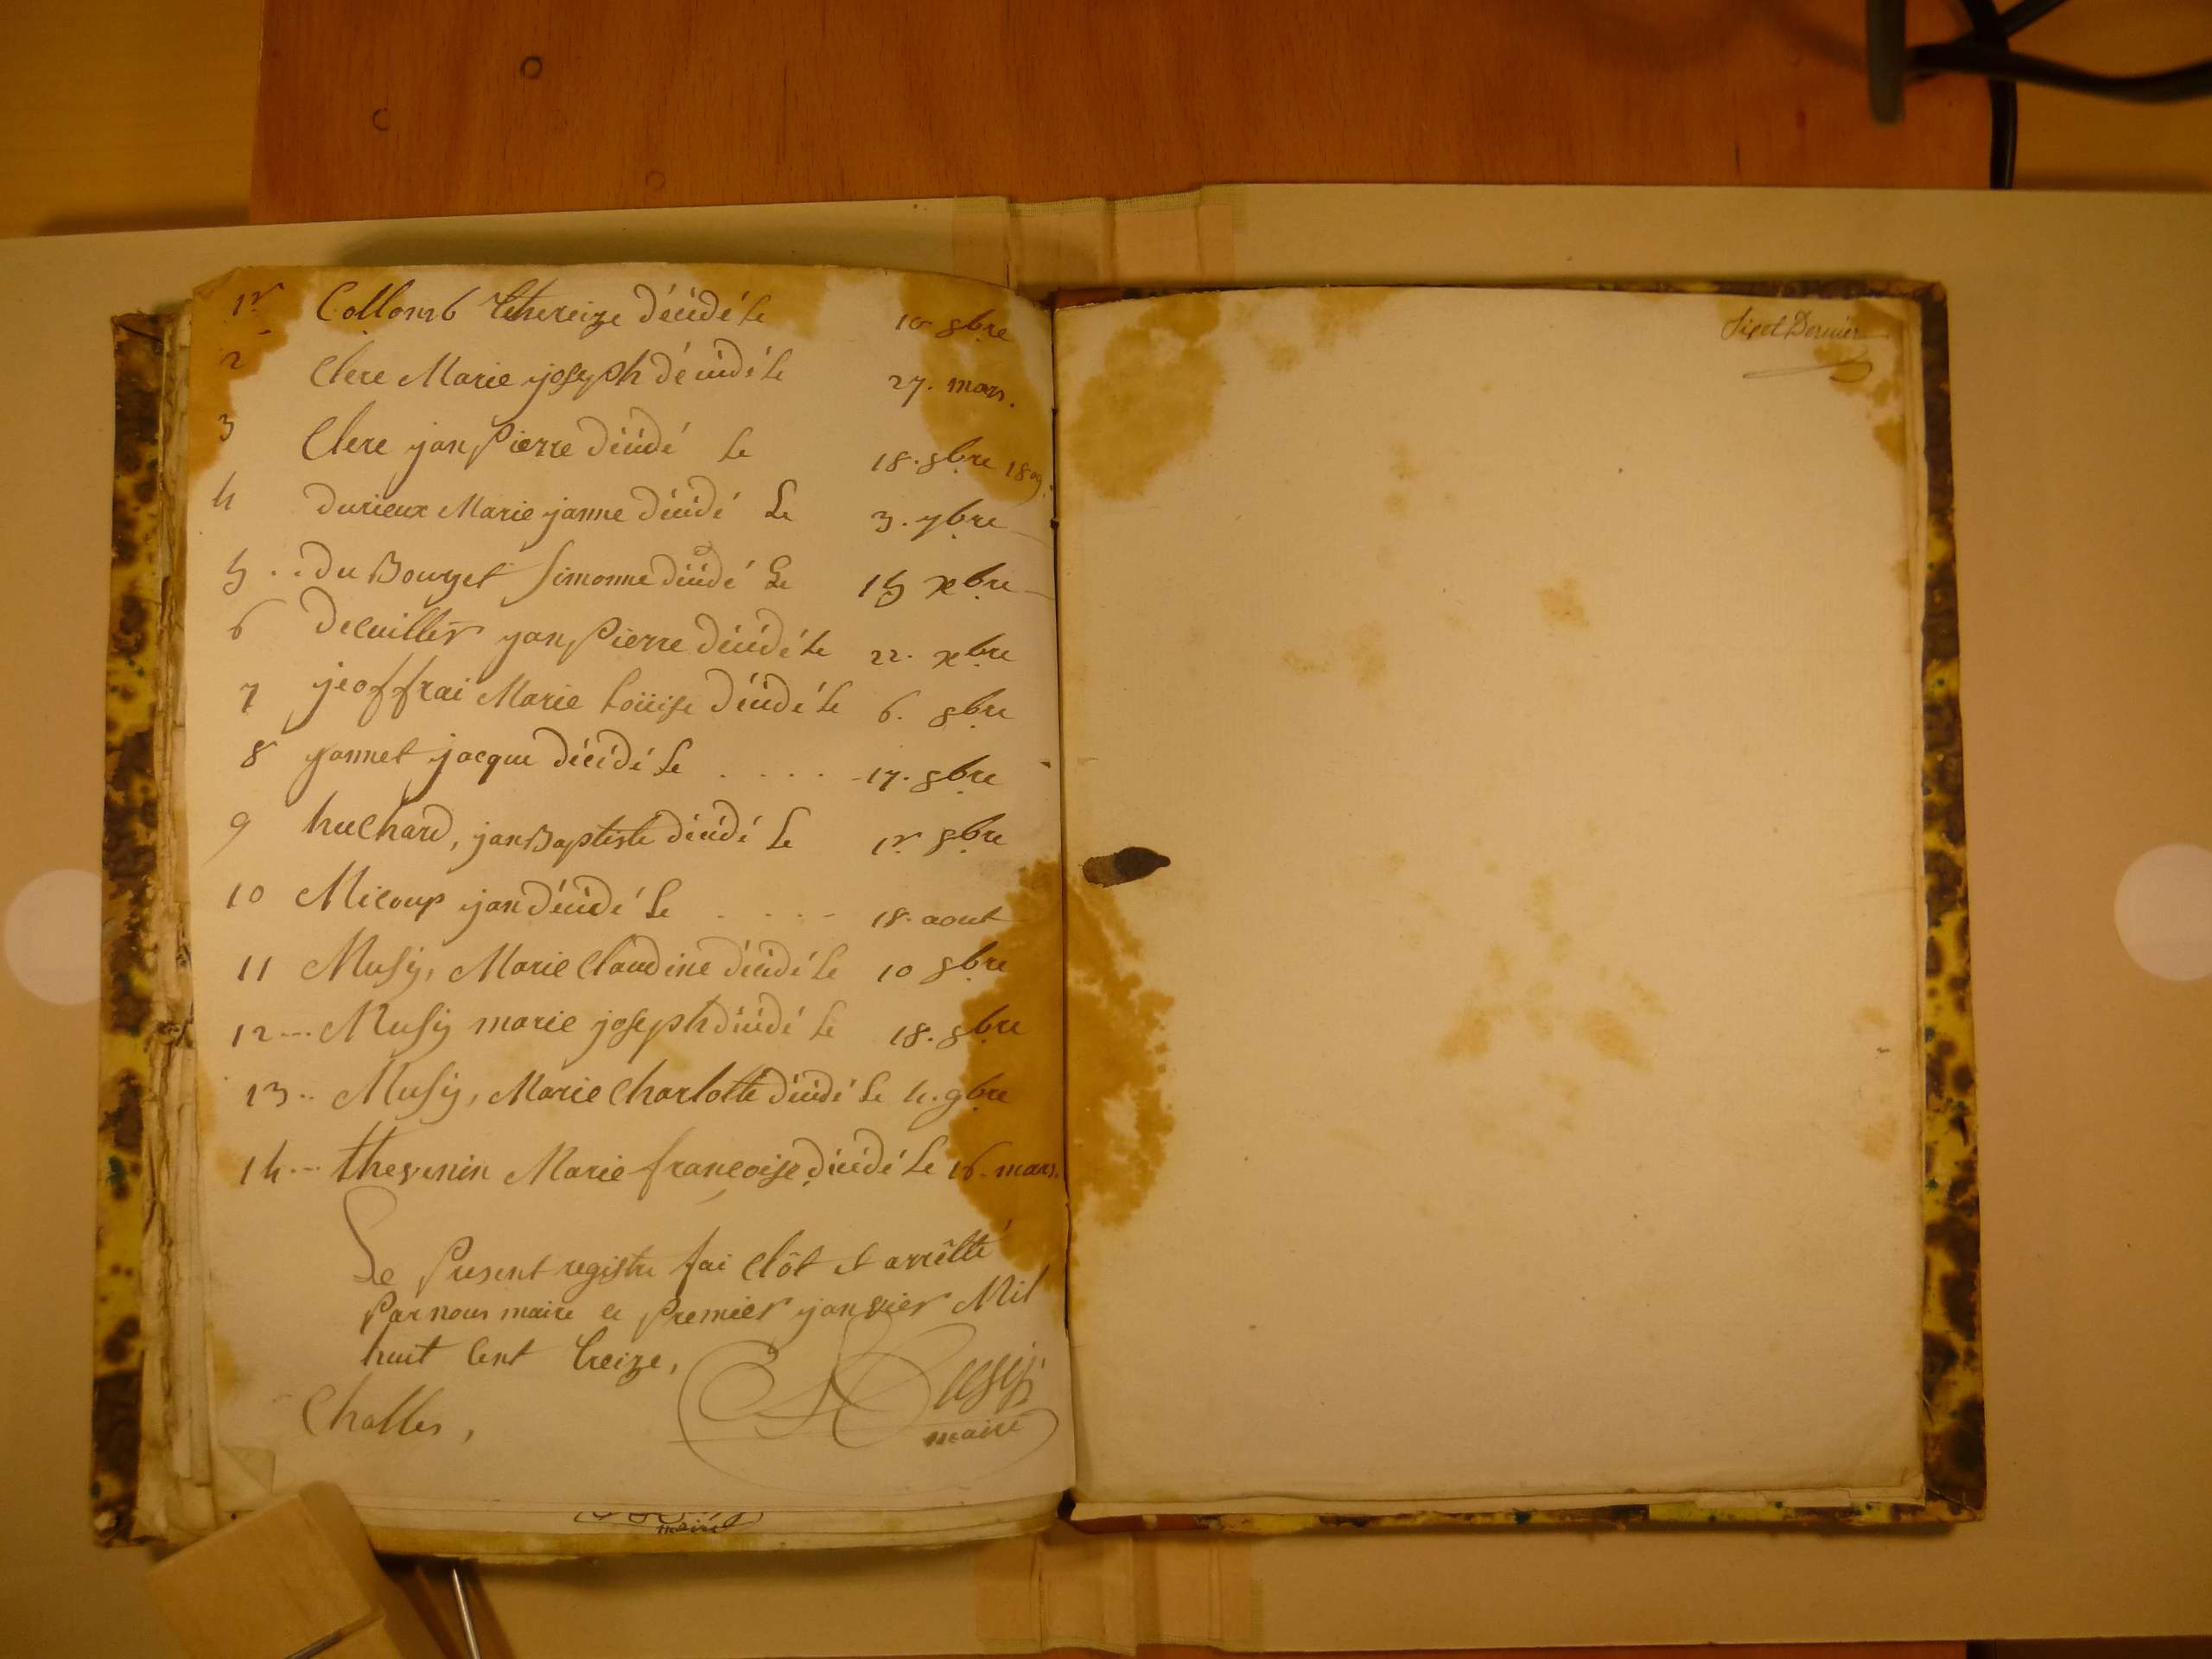 1r Collomb thereize décédé le 10 8bre
2 Clere Marie joseph décédé le 27. mars.
3 Clere jan Pierre décédé le 18. 8bre 1809.
4 durieux Marie janne décédé Le 3. 7bre
5 .. du Bouget Simonne décédé Le 15 xbre
6 decuiller jan Pierre décédé le 22. xbre
7 jeoffrai Marie Loüise décédé le 6. 8bre
8 jannet jacque décédé le . . . . 17. 8bre
9 huchard, jan Baptiste décédé le 1r. 8bre
10 Micoup jan décédé le . . . . 18. aout
11 Musy, Marie Claudine décédé le 10 8bre
12 --- Musy marie joseph décédé le 18. 8bre
13 .. Musy, Marie Charlotte décédé le 4. 9bre
14 --- thevenin Marie francoise décédé le 16. mars.
Le Present registre fai Clôt et arrêtté
Par nous maire le Premier janvier Mil
huit Cent treize,
Challes, Musy
maire
maire
Dernier